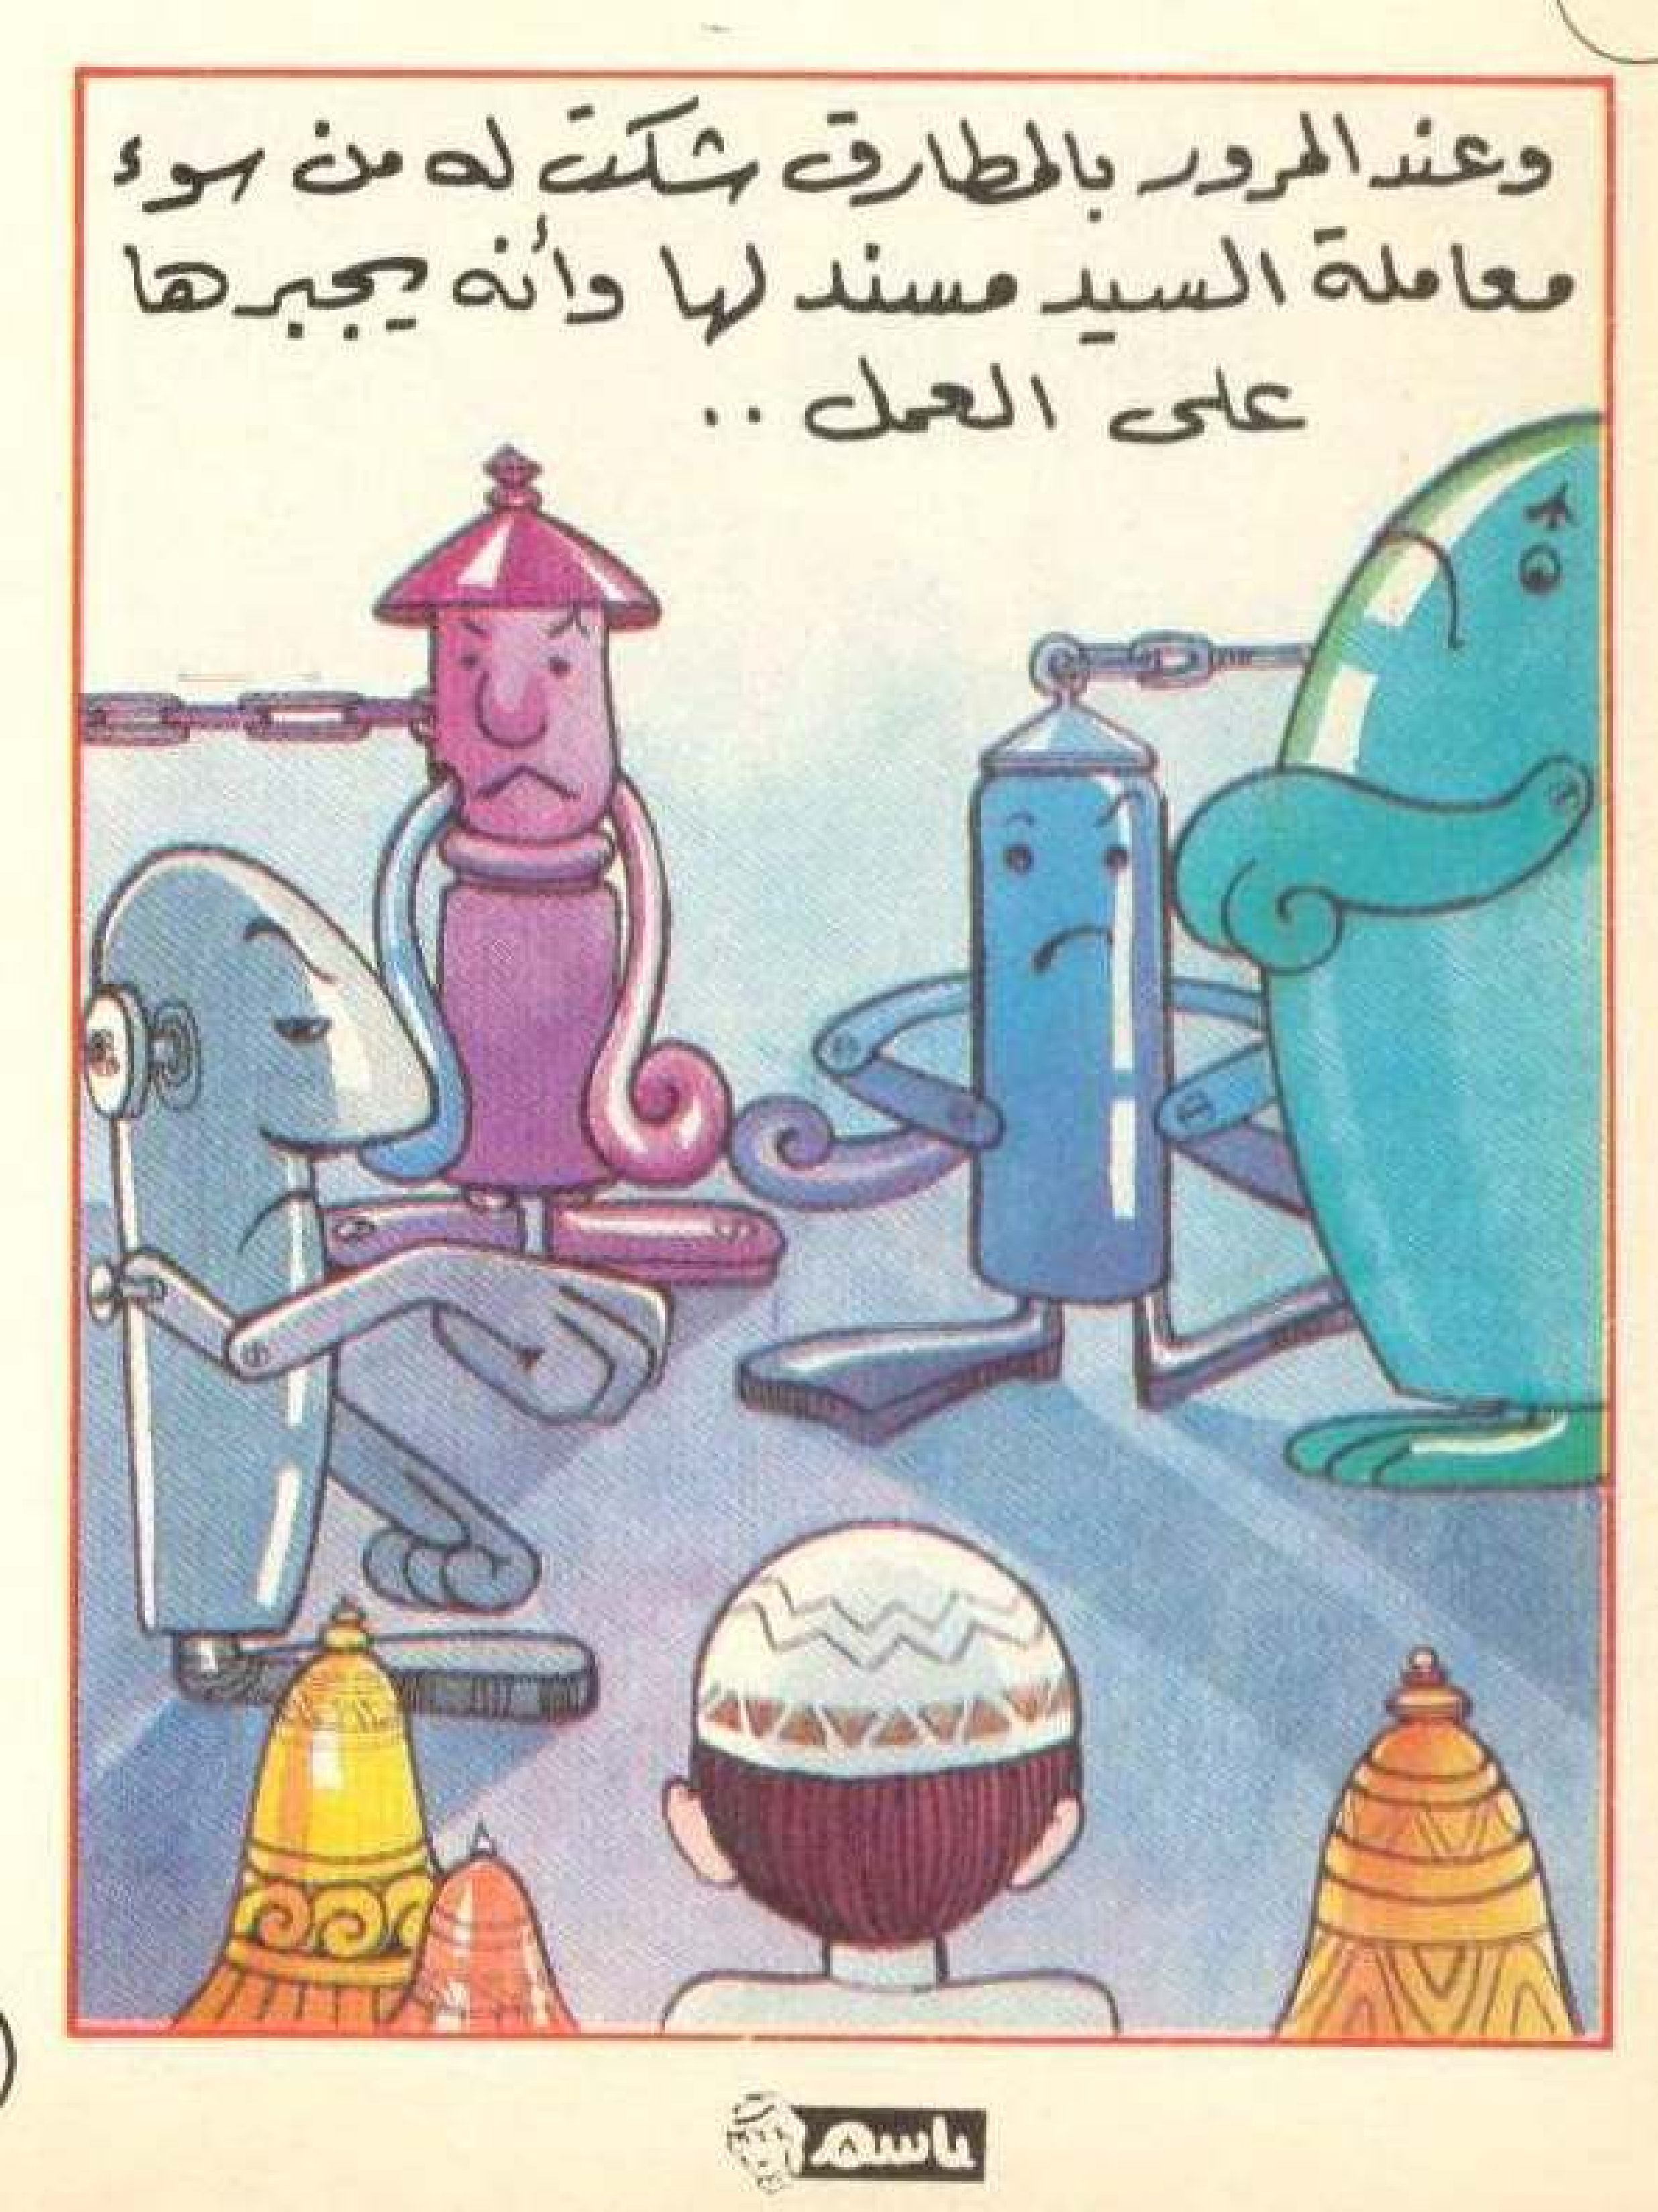 وعند المرور بالمطارق شكت له من سوء
معاملة السيد مسند لها وأنه يجبرها
على العمل ..
باسم